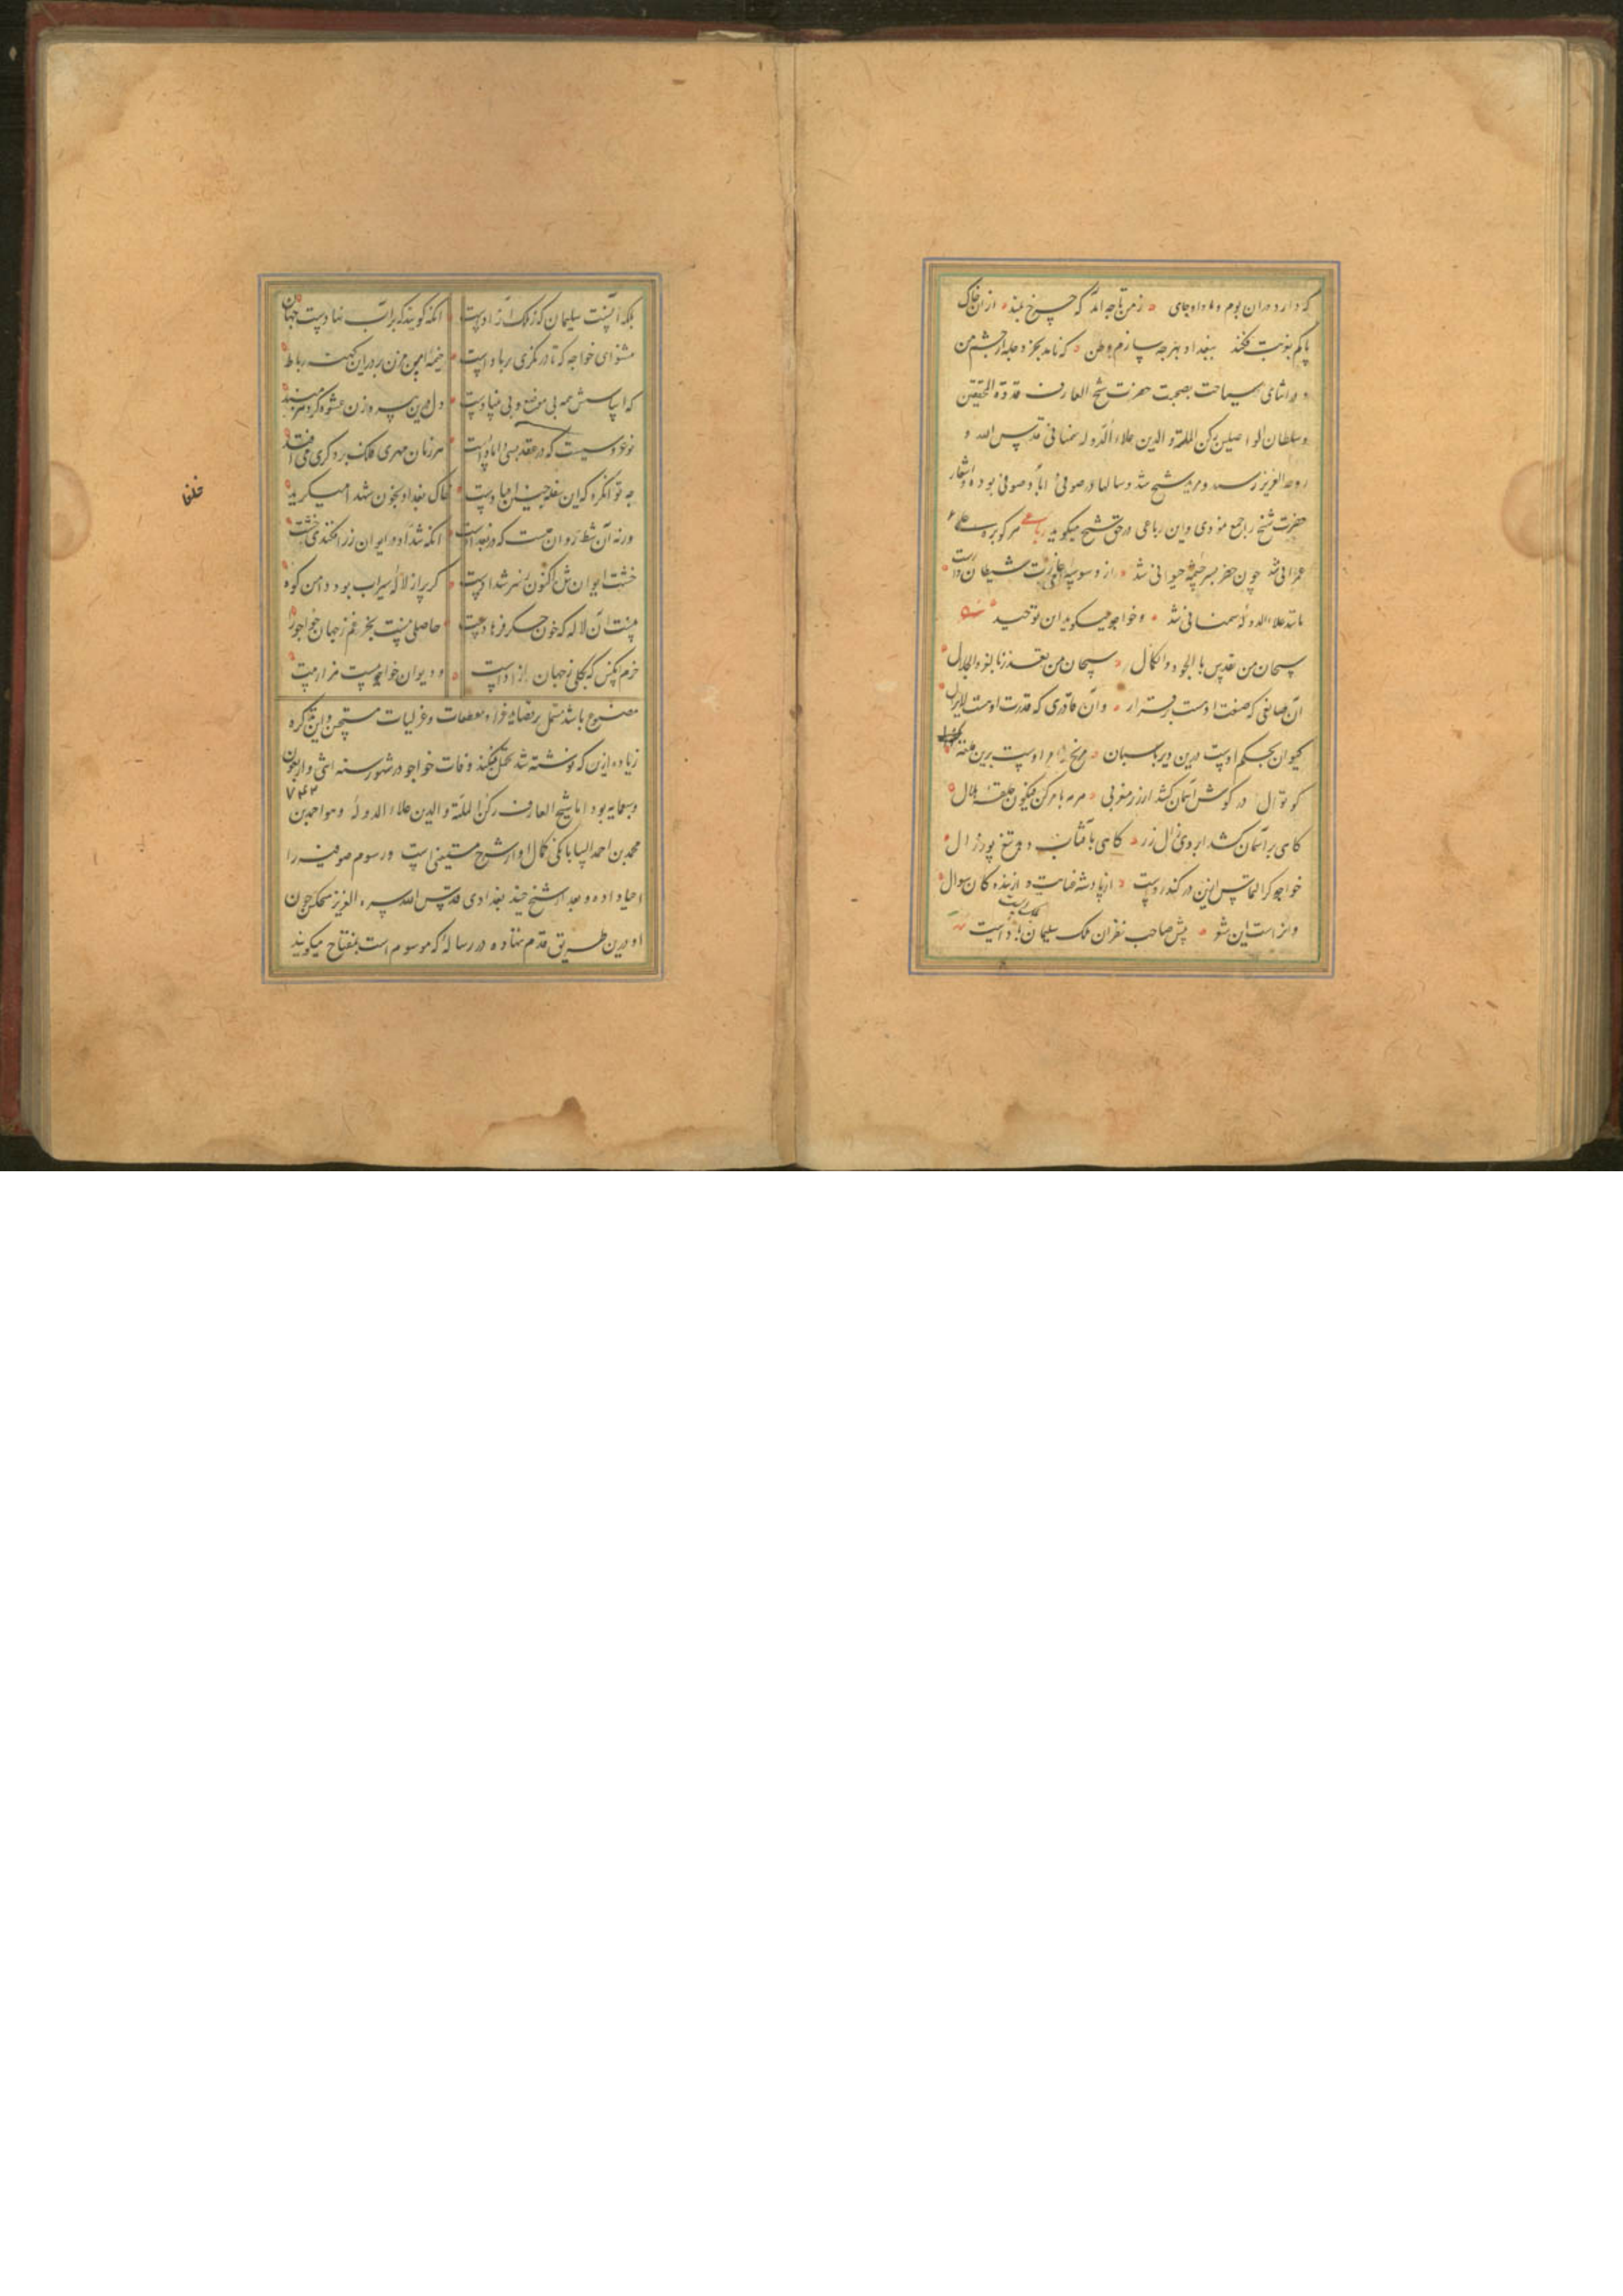 که دارد دران بوم و ماوا و جای ه ز من تا چه آمد که چرخ بلند ه ازان خاک
پاکم بغربت فکند ببغداد بهر چه سازم وطن ه که ناید بجز دجله از چشم من
و در اثنای سیاحت بصحبت حضرت شیخ العارف قدوة المحققین
و سلطان الواصلین رکن الملة و الدین علاء الدوله سمنانی قدس الله
روحه العزیز رسید و مرید شیخ شد و سالها در صوفی اباد صوفی بوده و اشعار
حضرت شیخ را جمع نمودی و این رباعی در حق شیخ میکوید رباعی هر کو بره علی
عمرانی شد چون خضر بسرچشمه حیوانی شد ه از وسوسه غارت شیطان وارست
مانند علاء الدوله سمنانی شد ه و خواجو میکوید ان توحید
سبحان من تقدس بالجود والکمال ه سبحان من تفرد بالعز والجلال
آن صانعی که صنعت اوست برقرار ه وان قادری که قدرت اوست لایزال
کیوان بحکم اوست درین دیر پاسبان ه مریخ از اوست برین قلعه
کوتوال در کوش آسمان کشد از زر مغربی ه هر مه بامر کن فیکون حلقه هلال
کاهی بر آسمان کشد ابروی زال زر ه کاهی بآفتاب دهد تیغ پور زال
خواجو کر التماس ازین در کند رواست ه از پادشه عنایت و از بنده کان سوال
و له است این شعر ه پیش صاحب نظران ملک سلیمان بادست
بلکه آنست سلیمان که ز ملک آزادست انکه کویند که بر آب نهادست جهان
مشنو ای خواجه که تا در نکری بر بادست خیمه انس مزن بر در این کهنه رباط
که اساسش همه بی موضع و بی بنیادست دل درین پیره زن عشوه کر دهر مبند
نوعروسیست که در عقد بسی دامادست هر زمان مهر فلک بر دکری می افتد
چه توان کرد که این سفله چنین افتادست خاک بغداد بخون شهدا میکرید
ورنه آن شط روان چیست که در بغدادست انکه شداد در ایوان ز زر افکندی خشت
خشت ایوان شه اکنون ز سر شدادست کر پر از لاله سیراب بود دامن کوه
نیست آن لاله که خون جکر فرهادست حاصلی نیست بجز غم ز جهان خواجو را
خرم انکس که بکلی ز جهان آزادست و دیوان خواجو بیست هزار بیت
مصنوع باشد مشتمل بر قصاید غرا و مقطعات و غزلیات مستحسن و این تذکره
زیاده ازین که نوشته شد تحمل نمیکند وفات خواجو در شهور سنه اثنی و اربعون
۷۴۲
و سبعمایه بود اما شیخ العارف رکن الملة و الدین علاء الدوله و هو احمد بن
محمد بن احمد البیابانکی کمال او از شرح مستغنی است و رسوم صوفیه را
احیا داده و بعد از شیخ جنید بغدادی قدس الله سره العزیز هیچکس چون
او درین طریق قدم ننهاده در رساله که موسوم است بمفتاح میکویند
خلفا